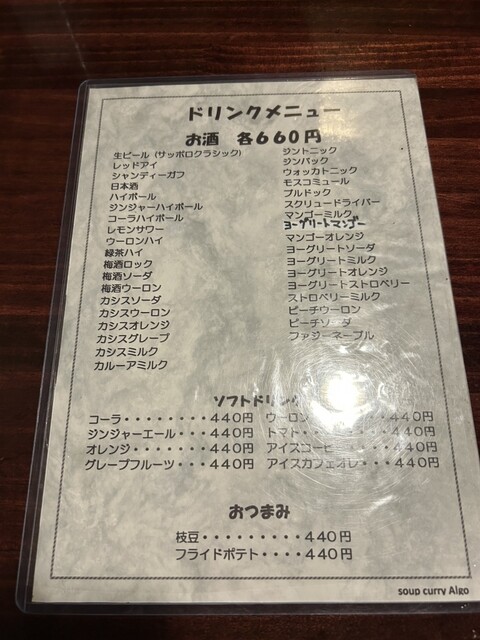 ドリンクメニュー
お酒 各660円
生ビール (サッポロクラシック)
レッドアイ
シャンディーガフ
日本酒
ハイボール
ジンジャーハイボール
コーラハイボール
レモンサワー
ウーロンハイ
緑茶ハイ
梅酒ロック
梅酒ソーダ
梅酒ウーロン
カシスソーダ
カシスウーロン
カシスオレンジ
カシスグレープ
カシスミルク
カルーアミルク
ジントニック
ジンバック
ウォッカトニック
モスコミュール
ブルドック
スクリュードライバー
マンゴーミルク
ヨーグリートマンゴー
マンゴーオレンジ
ヨーグリートソーダ
ヨーグリートミルク
ヨーグリートオレンジ
ヨーグリートストロベリー
ストロベリーミルク
ピーチウーロン
ピーチソーダ
ファジーネーブル
ソフトドリンク
コーラ・・・・・・・・440円
ジンジャーエール・・・440円
オレンジ・・・・・・・440円
グレープフルーツ・・・440円
ウーロン・・・440円
トマト・・・・・・・440円
アイスコーヒー・・・440円
アイスカフェオレ・・・440円
おつまみ
枝豆・・・・・・・・・440円
フライドポテト・・・・440円
soup curry Algo